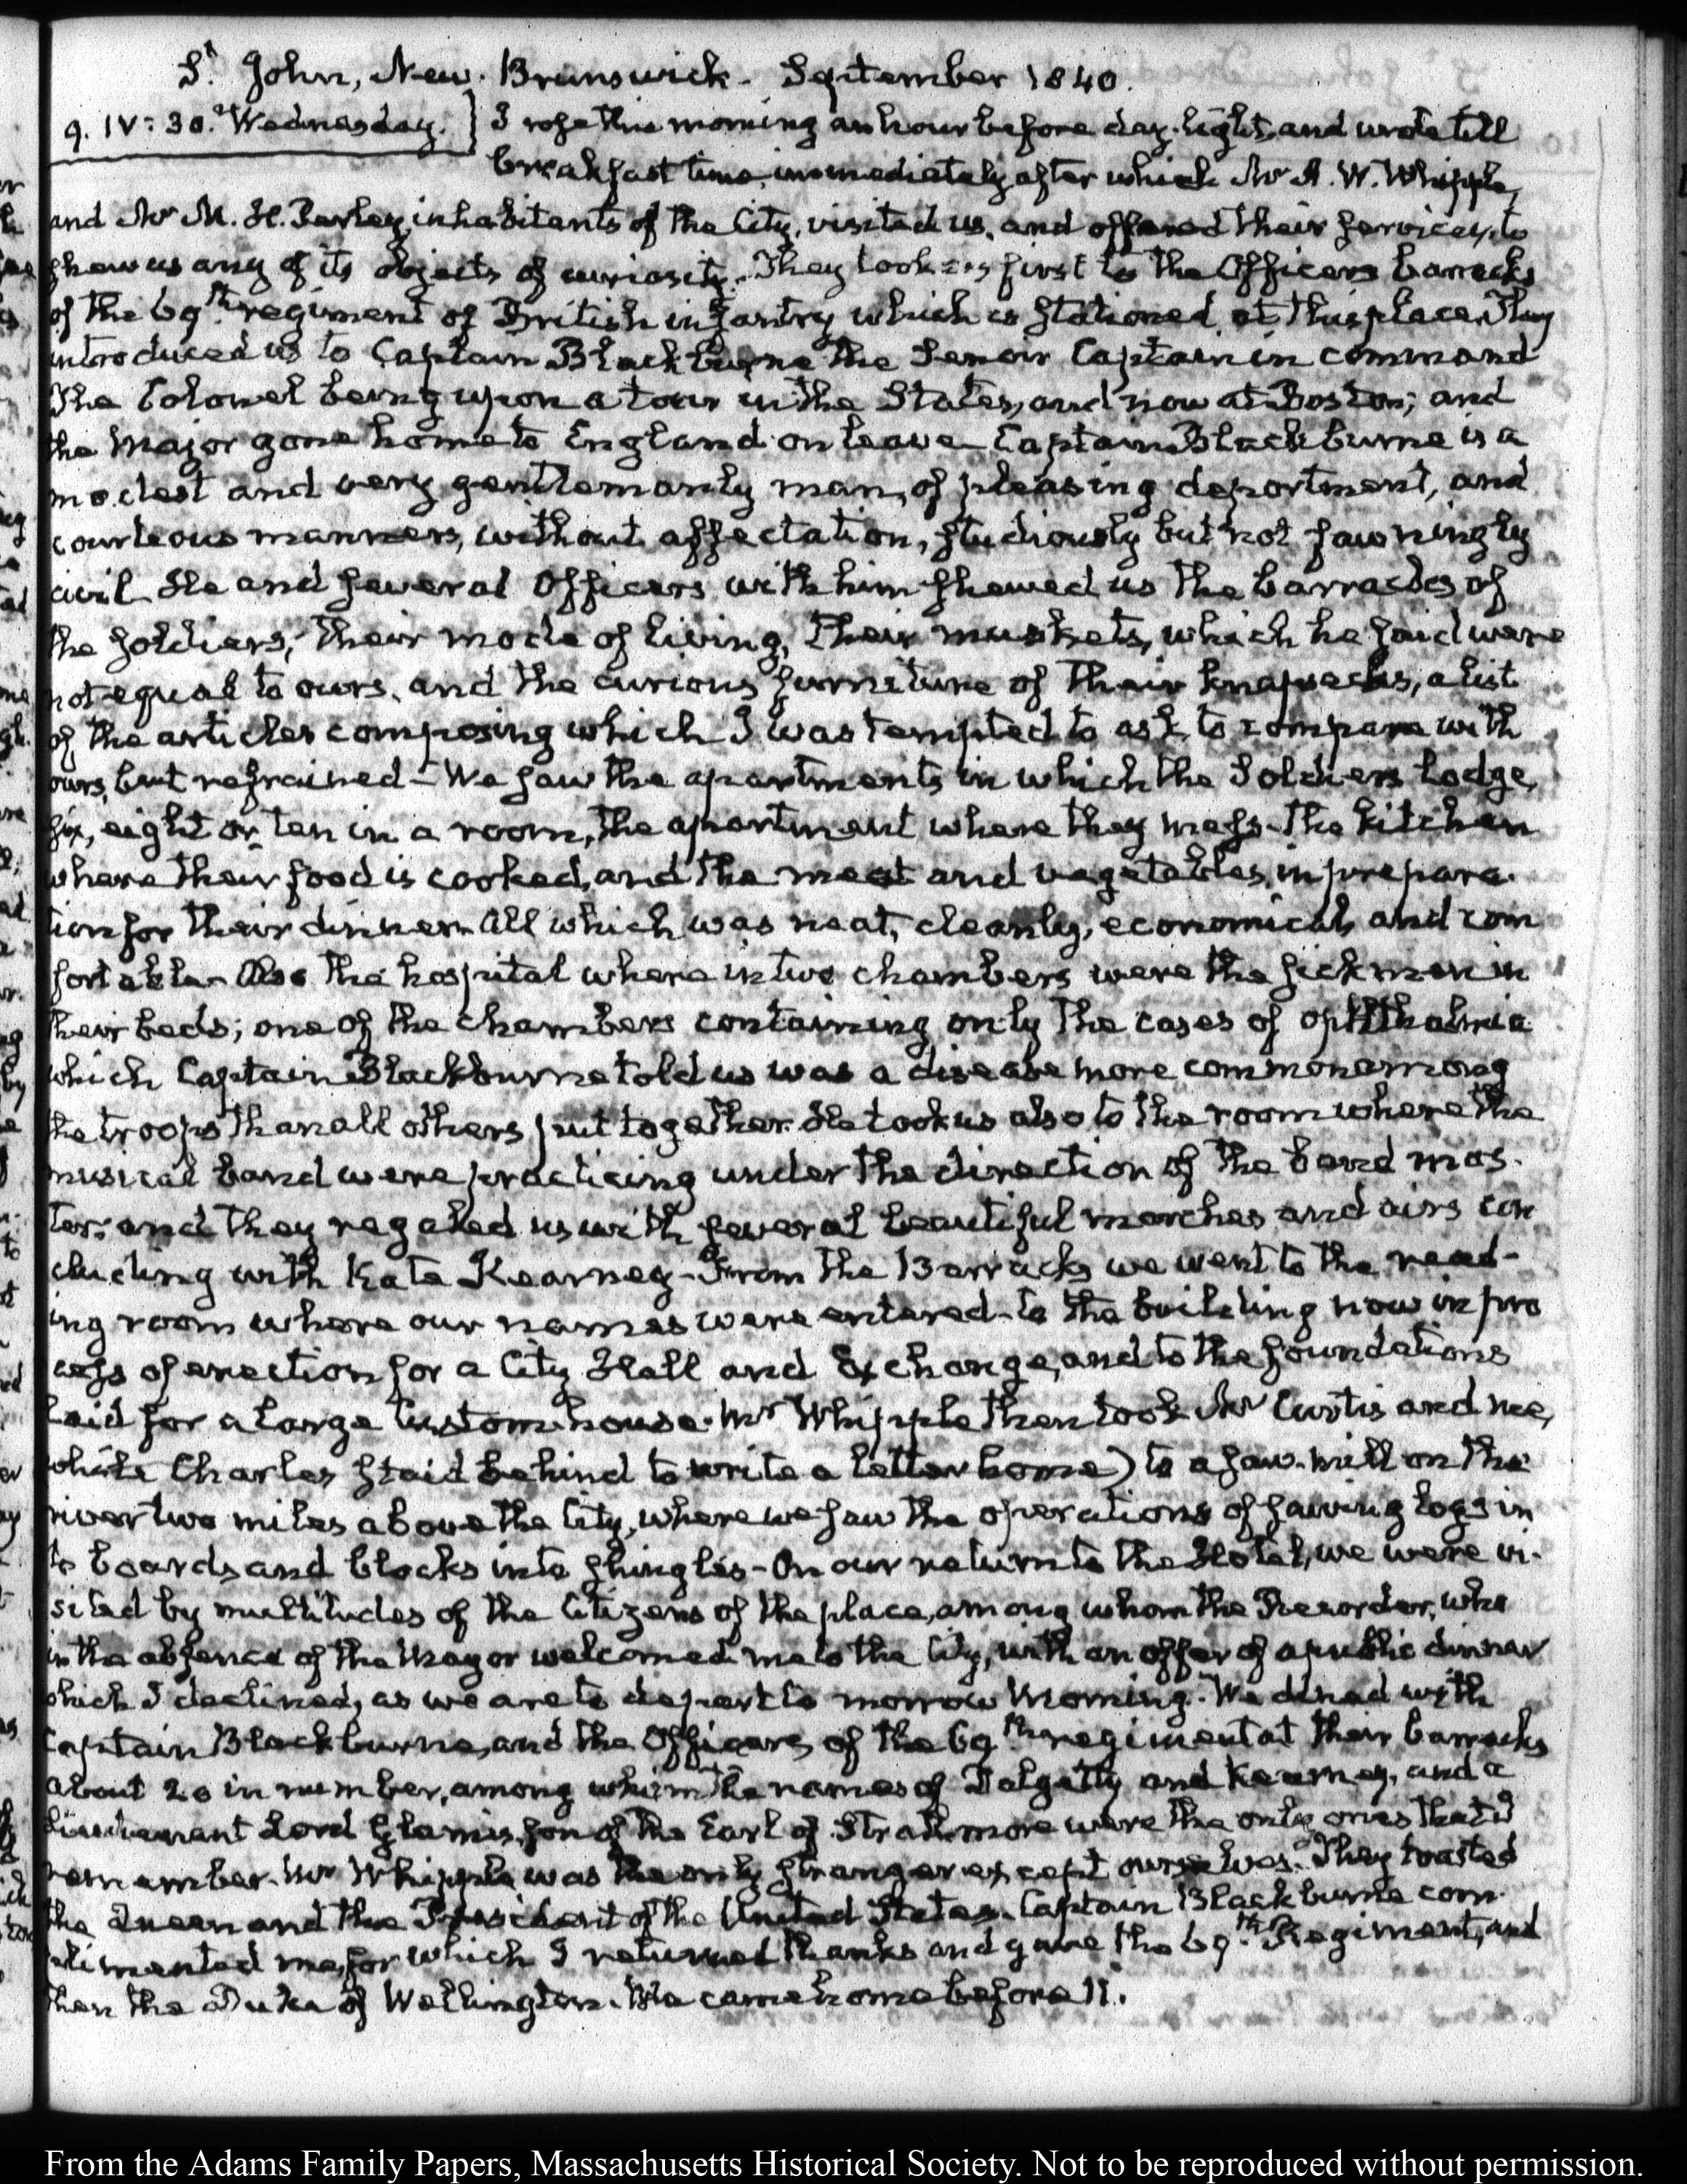 St. John, New-Brunswick- September 1840.
9. IV: 30. Wednesday. } I rose this morning an hour before day-light, and wrote till
breakfast time, immediately after which Mr A. W. Whipple,
and Mr M. H. Perley, inhabitants of the City, visited us, and offered their services, to
shew us any of its objects of curiosity. They took us first to the Officers barracks
of the 69th. regiment of British infantry which is stationed at this place. They
introduced us to Captain Blackburne the Senior Captain in command
The Colonel being upon a tour in the States, and now at Boston; and
the Major gone home to England on leave- Captain Blackburne is a
modest and very gentlemanly man, of pleasing deportment, and
courteous manners, without affectation, studiously but not fawningly
civil. He and several Officers with him shewed us the barracks of
the soldiers; their mode of living, their muskets, which he said were
not equal to ours, and the curious furniture of their knapsacks, a list
of the articles composing which I was tempted to ask, to compare with
ours, but refrained- We saw the apartments in which the Soldiers lodge,
six, eight or ten in a room, the apartment where they mess- the kitchen
where their food is cooked, and the meat and vegetables, in prepara-
tion for their dinner- All which was neat, cleanly, economical, and com
fortable- Also the hospital where in two chambers were the sick men in
their beds; one of the chambers containing only the cases of ophthalmia
which Captain Blackburne told us was a disease more common among
the troops than all others put together. He took us also to the room where the
musical band were practicing under the direction of the band mas-
ter; and they regaled us with several beautiful marches and airs con
cluding with Kate Kearney- From the Barracks we went to the read-
ing room where our names were entered- to the building now in pro
cess of erection for a City Hall and Exchange, and to the foundations
laid for a large Custom-house. Mr Whipple then took Mr Curtis and me,
while Charles staid behind to write a letter home) to a saw-mill on the
river two miles above the City, where we saw the operations of sawing logs in
to boards and blocks into shingles- On our return to the Hotel, we were vi-
sited by multitudes of the Citizens of the place, among whom the Recorder, who
in the absence of the Mayor welcomed me to the City, with an offer of a public dinner
which I declined, as we are to depart to morrow Morning. We dined with
Captain Blackburne, and the Officers of the 69th regiment at their barracks
about 20 in number, among whom the names of Dalgetty and Kearney, and a
Lieutenant Lord Glamis, son of the Earl of Strathmore were the only ones that I
remember. Mr Whipple was the only stranger except ourselves. They toasted
the Queen and the President of the United States. Captain Blackburne com-
plimented me, for which I returned thanks and gave the 69th. Regiment, and
then the Duke of Wellington. We came home before 11.
From the Adams Family Papers, Massachusetts Historical Society. Not to be reproduced without permission.